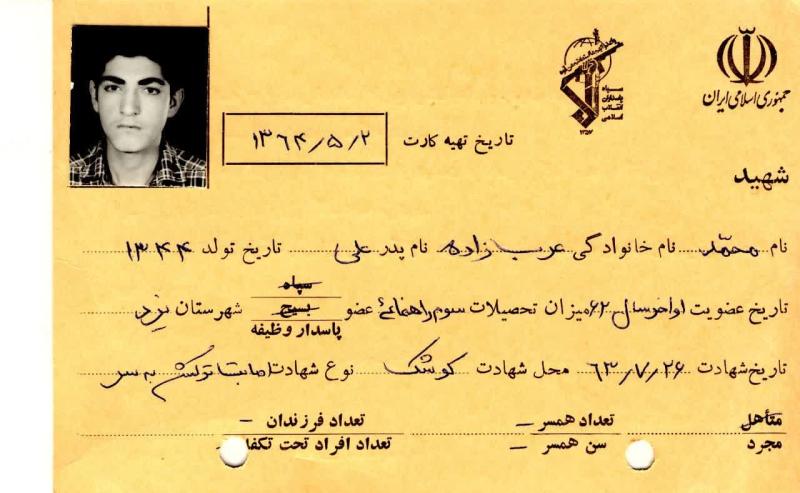 جمهوری اسلامی ایران
سپاه پاسداران انقلاب اسلامی
۱۳۵۷
تاریخ تهیه کارت ۱۳۶۴/۵/۲
شهید
نام محمّد نام خانوادگی عرب زاده نام پدر علی تاریخ تولد ۱۳۴۴
تاریخ عضویت اواخر سال ۶۲ میزان تحصیلات سوم راهنمائی عضو سپاه بسیج پاسدار وظیفه شهرستان یزد
تاریخ شهادت ۶۳/۷/۲۶ محل شهادت کوشک نوع شهادت اصابت ترکش به سر
متأهل تعداد همسر – تعداد فرزندان –
مجرد سن همسر – تعداد افراد تحت تکفل –